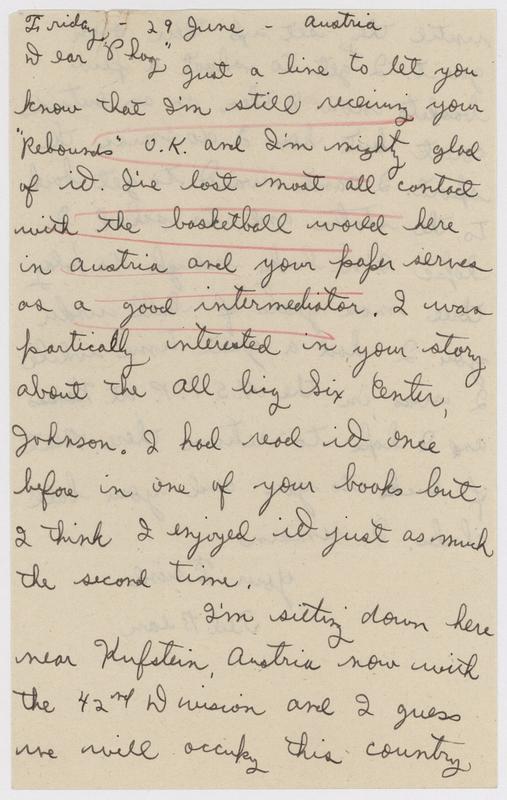 Friday, - 29 June - Austria
Dear "Phog"
Just a line to let you
know that I'm still receiving your
"Rebounds" O.K. and I'm mighty glad
of it. I've lost most all contact
with the basketball world here
in Austria and your paper serves
as a good intermediator. I was
partically interested in your story
about the all big Six Center,
Johnson. I had read it once
before in one of your books but
I think I enjoyed it just as much
the second time.
I'm sitting down here
near Kufstein, Austria now with
the 42nd Division and I guess
we will occupy this country